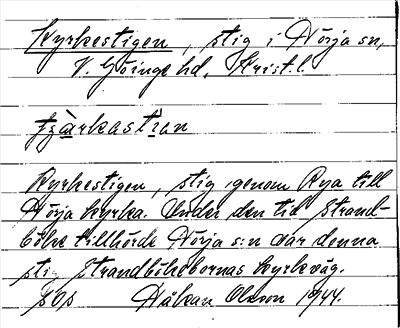 Kyrkestigen, stig i Nörja sn,
V. Göinge hd, Krist.l.
Kyrkestigen, stig genom Rya till
Nörja kyrka. Under den tid Strand-
böke tillhörde Nörja s:n var denna
stig Strandbökebornas kyrkväg.
SOS Håkan Olsson 1944.